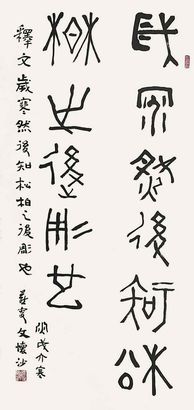 歲寒然後知松
柏之後彫也
釋文歲寒然後知松柏之後彫也 燕叟文懷沙